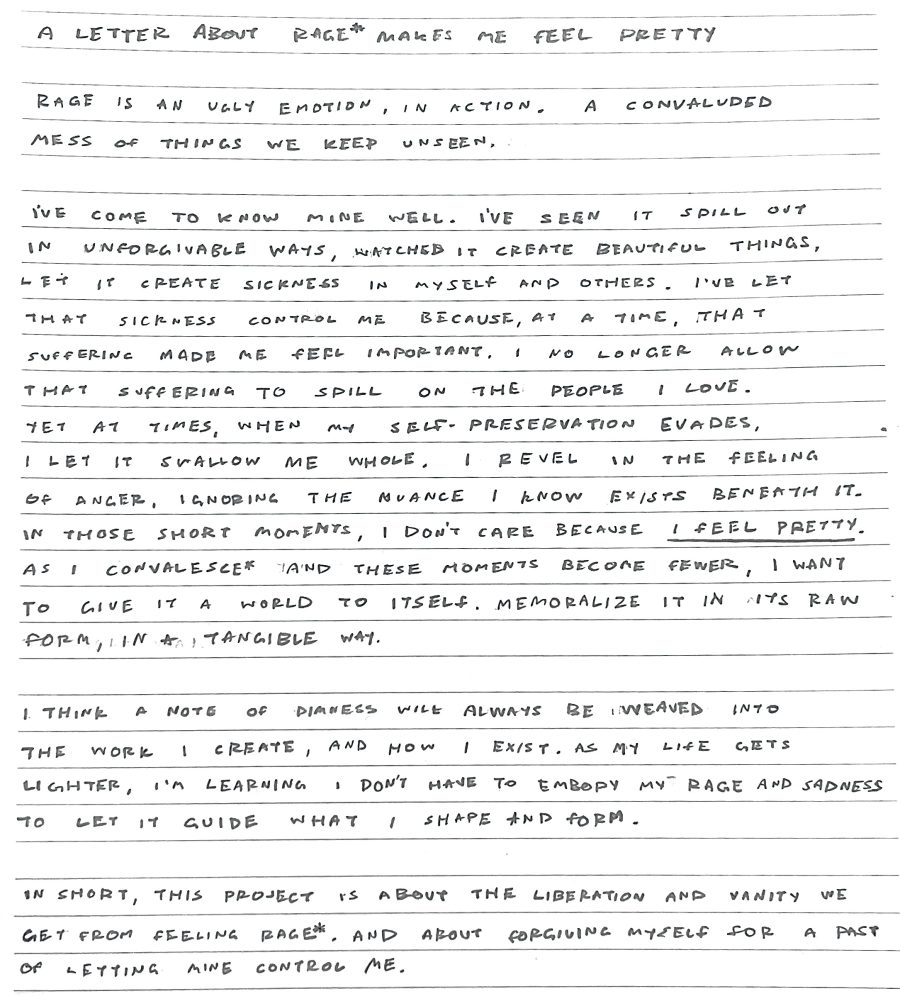 A LETTER ABOUT RAGE* MAKES ME FEEL PRETTY
RAGE IS AN UGLY EMOTION, IN ACTION. A CONVALUDED
MESS OF THINGS WE KEEP UNSEEN.
I'VE COME TO KNOW MINE WELL. I'VE SEEN IT SPILL OUT
IN UNFORGIVABLE WAYS, WATCHED IT CREATE BEAUTIFUL THINGS,
LET IT CREATE SICKNESS IN MYSELF AND OTHERS. I'VE LET
THAT SICKNESS CONTROL ME BECAUSE, AT A TIME, THAT
SUFFERING MADE ME FEEL IMPORTANT. I NO LONGER ALLOW
THAT SUFFERING TO SPILL ON THE PEOPLE I LOVE.
YET AT TIMES, WHEN MY SELF-PRESERVATION EVADES,
I LET IT SWALLOW ME WHOLE. I REVEL IN THE FEELING
OF ANGER, IGNORING THE NUANCE I KNOW EXISTS BENEATH IT.
IN THOSE SHORT MOMENTS, I DON'T CARE BECAUSE I FEEL PRETTY.
AS I CONVALESCE* AND THESE MOMENTS BECOME FEWER, I WANT
TO GIVE IT A WORLD TO ITSELF. MEMORALIZE IT IN ITS RAW
FORM, IN A TANGIBLE WAY.
I THINK A NOTE OF DIMNESS WILL ALWAYS BE WEAVED INTO
THE WORK I CREATE, AND HOW I EXIST. AS MY LIFE GETS
LIGHTER, I'M LEARNING I DON'T HAVE TO EMBODY MY RAGE AND SADNESS
TO LET IT GUIDE WHAT I SHAPE AND FORM.
IN SHORT, THIS PROJECT IS ABOUT THE LIBERATION AND VANITY WE
GET FROM FEELING RAGE*. AND ABOUT FORGIVING MYSELF FOR A PAST
OF LETTING MINE CONTROL ME.